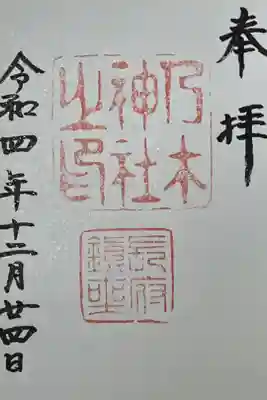 奉拝
乃木
神社
之印
長府
令和四年十二月廿四日